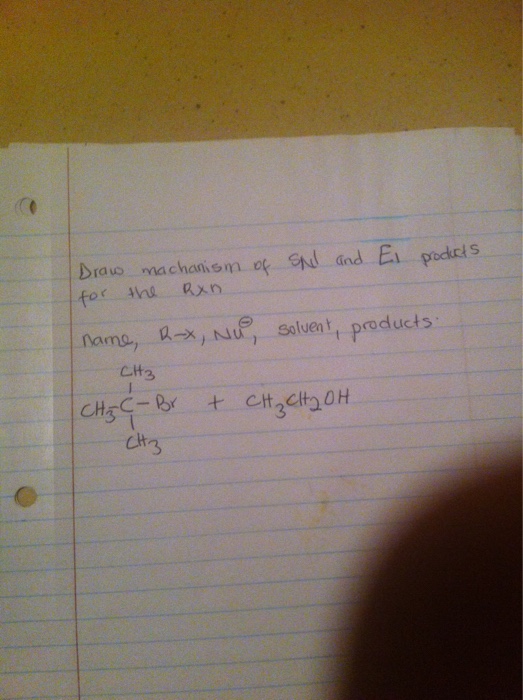 Draw machanism of SN1 and E1 products
for the Rxn
name, R-x, Nu⊖, solvent, products.
CH3
CH3-C-Br + CH3CH2OH
CH3